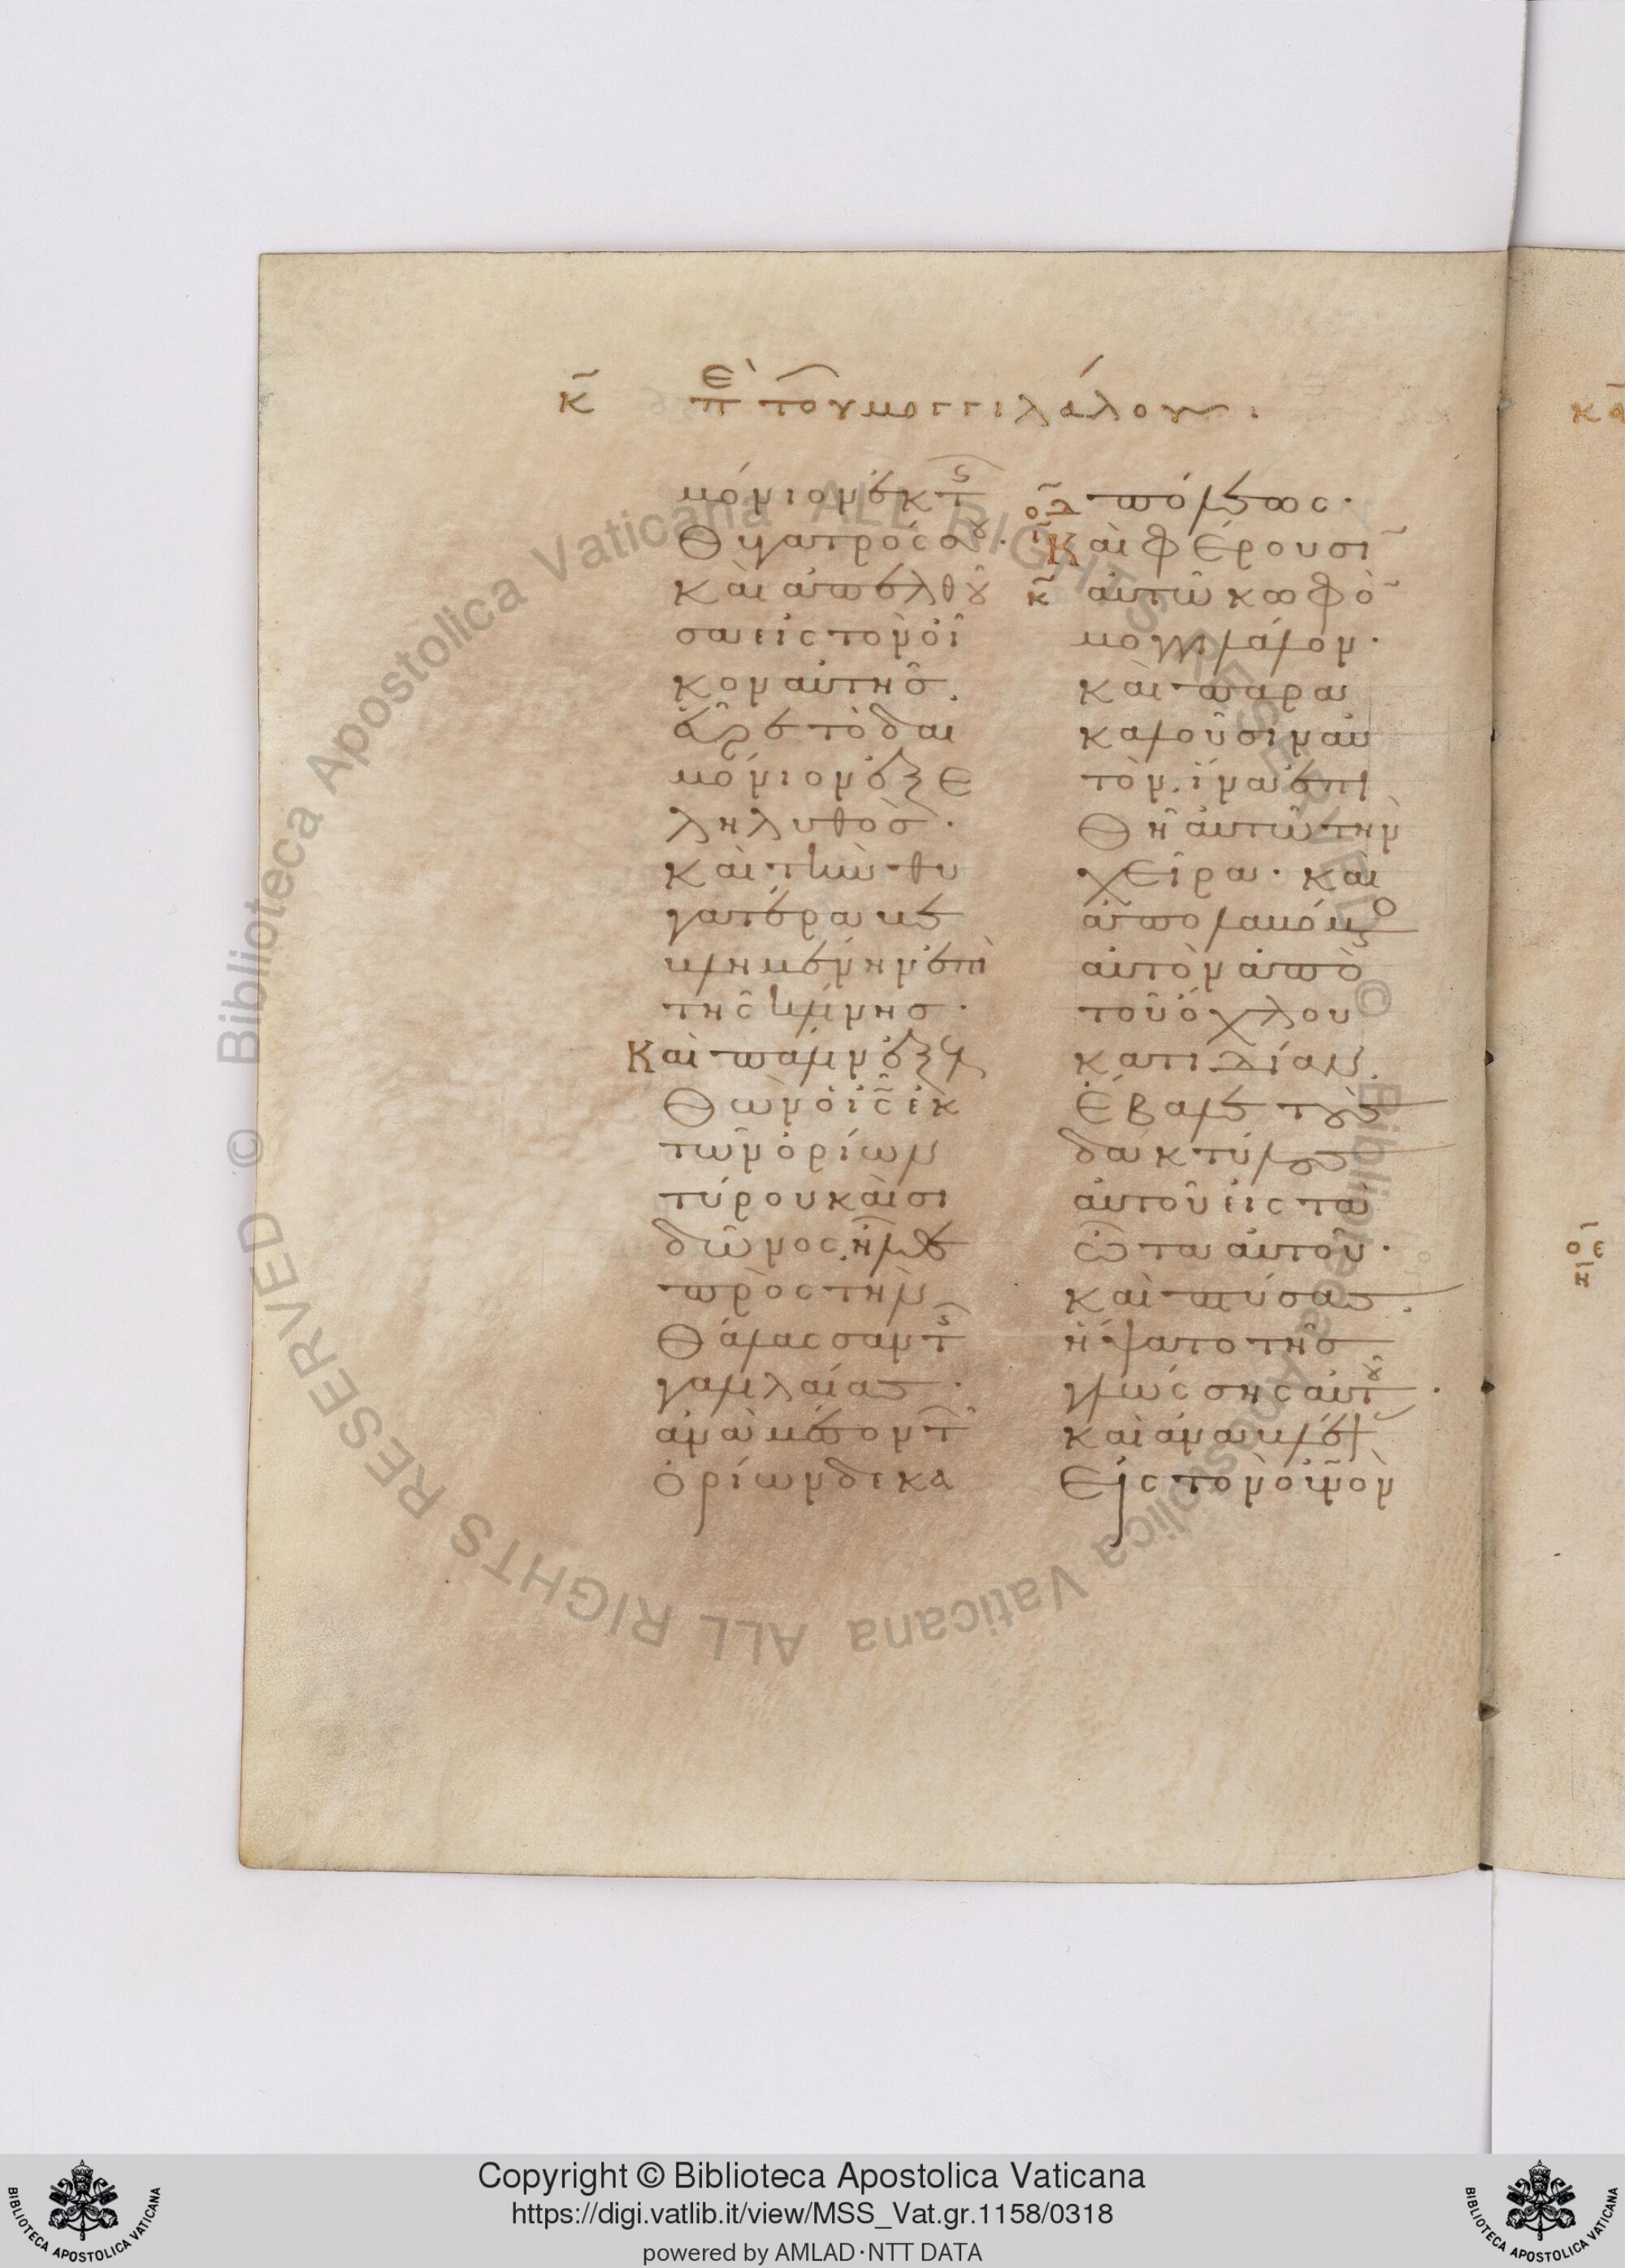 κ̄ πὲ τοῦ μογγιλάλου
μόνιον ἐκ τῆς
θυγατρός σου.
καὶ ἀπελθοῦ
σα εἰς τὸν οἶ
κον αὐτῆς.
εὗρε τὸ δαι
μόνιον ἐξε
ληλυθός.
καὶ τὴν θυ
γατέρα βε
βλημένην ἐπὶ
τῆς κλίνης.
Καὶ πάλιν ἐξελ
θὼν ὁ ις̄ ἐκ
τῶν ὁρίων
τύρου καὶ σι
δῶνος. ἦλθε
πρὸς τὴν
θάλασσαν τῆς
γαλιλαίας.
ἀνὰ μέσον τῶν
ὁρίων δεκα
πόλεως.
Καὶ φέρουσῑ
κ̄ αὐτῶ κωφὸ̄
μογγιλάλον.
καὶ παρα
καλοῦσιν αὐ
τὸν. ἵνα ἐπι
θῆ αὐτῶ τὴν
χεῖρα. καὶ
ἀπολαβόμενος
αὐτὸν ἀπὸ
τοῦ ὄχλου
κατιδίαν.
ἔβαλε τοὺς
δακτύλους
αὐτοῦ εἰς τὰ
ὦτα αὐτοῦ.
καὶ πτύσας.
ἥψατο τῆς
γλώσσης αὐτοῦ.
καὶ ἀναβλέψας
εἰς τὸν οὐνὸν
Copyright © Biblioteca Apostolica Vaticana
https://digi.vatlib.it/view/MSS_Vat.gr.1158/0318
powered by AMLAD·NTT DATA
BIBLIOTECA APOSTOLICA VATICANA
BIBLIOTECA APOSTOLICA VATICANA
© Biblioteca Apostolica Vaticana ALL RIGHTS RESERVED
© Biblioteca Apostolica Vaticana ALL RIGHTS RESERVED